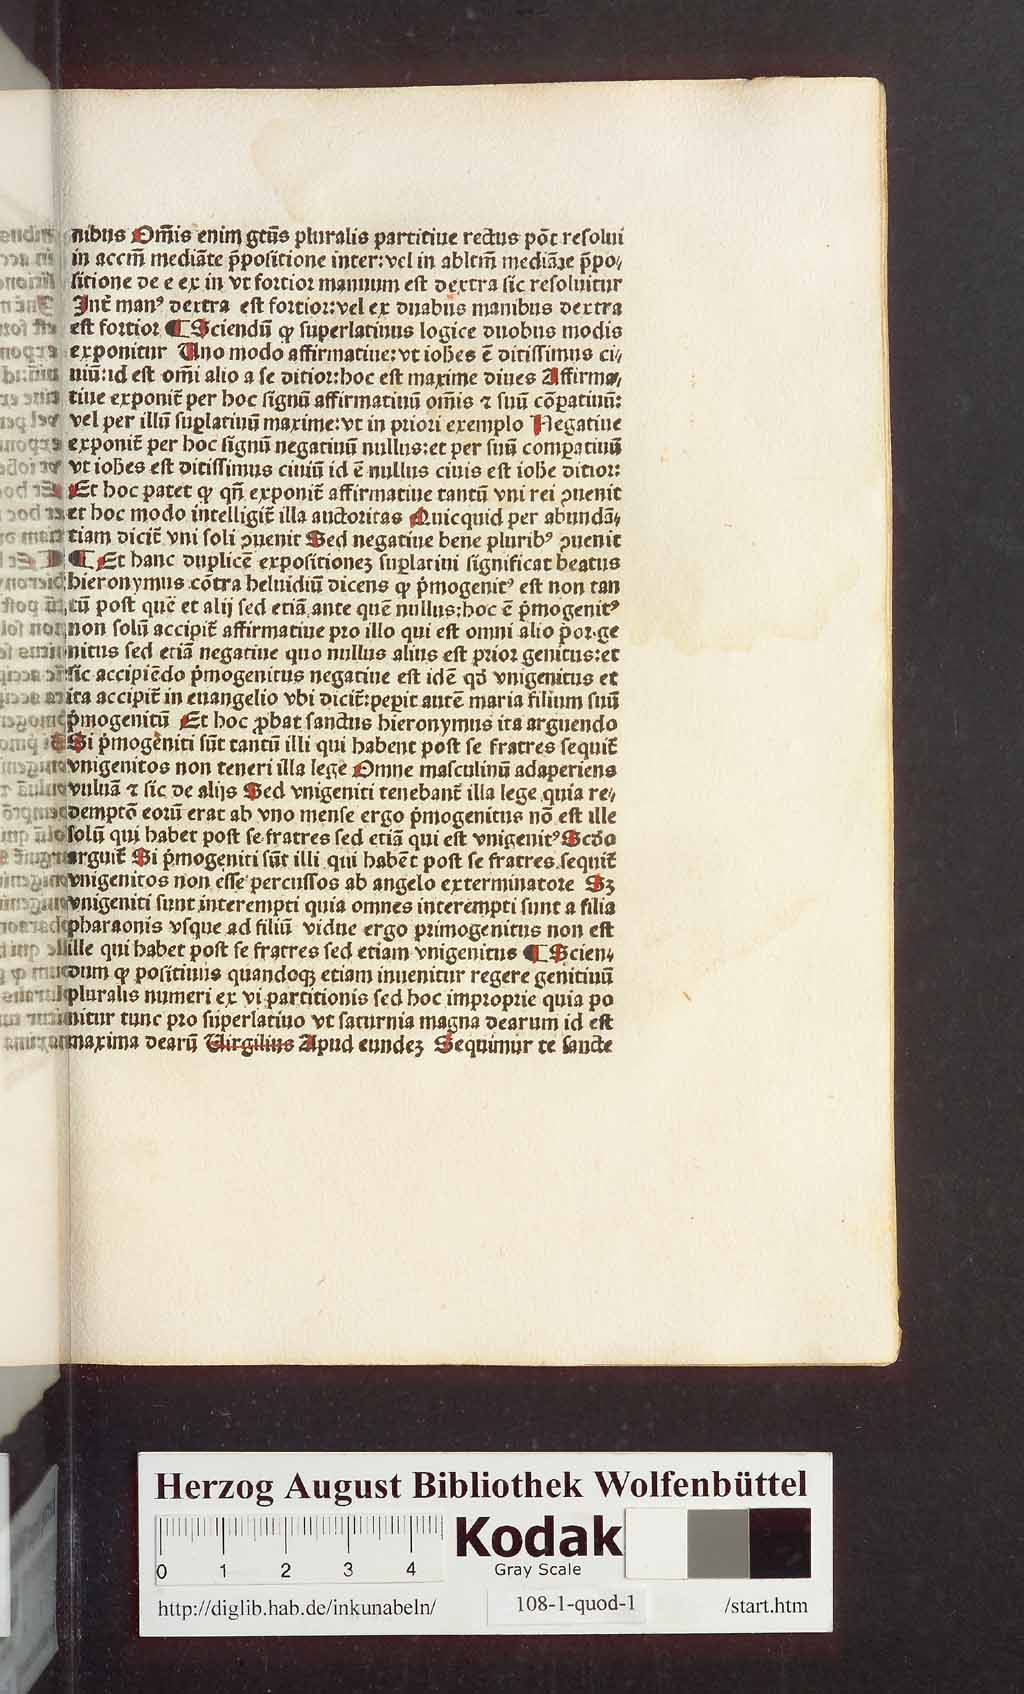 nibus Om̄is enim gtūs pluralis partitiue rectus pōt resolui
in accm̄ mediāte p̄positione inter: vel in abltm̄ mediāte p̄po⸗
sitione de e ex in vt fortior manuum est dextra sic resoluitur
Int̄ manꝰ dextra est fortior: vel ex duabus manibus dextra
est fortior ¶ Sciendū ꝙ superlatiuus logice duobus modis
exponitur Uno modo affirmatiue: vt ioh̄es ē ditissimus ci⸗
uiū: id est om̄i alio a se ditior: hoc est maxime diues Affirma⸗
tiue exponit̄ per hoc signū affirmatiuū om̄is ⁊ suū cōꝑatiuū:
vel per illū suꝑlatiuū maxime: vt in priori exemplo Negatiue
exponit̄ per hoc signū negatiuū nullus: et per suū comparatiuū
vt ioh̄es est ditissimus ciuiū id ē nullus ciuis est ioh̄e ditior:
Et hoc patet ꝙ qn̄ exponit̄ affirmatiue tantū vni rei ꝯuenit
et hoc modo intelligit̄ illa auctoritas Quicquid per abundā⸗
tiam dicit̄ vni soli ꝯuenit Sed negatiue bene pluribꝰ ꝯuenit
¶ Et hanc duplicē expositionez suꝑlatiui significat beatus
hieronymus cōtra heluidiū dicens ꝙ p̍mogenitꝰ est non tan
tū post quē et alij sed etiā ante quē nullus: hoc ē p̍mogenitꝰ
non solū accipit̄ affirmatiue pro illo qui est omni alio p̍or ge
nitus sed etiā negatiue quo nullus alius est prior genitus: et
sic accipiēdo p̍mogenitus negatiue est idē qd̄ vnigenitus et
ita accipit̄ in euangelio vbi dicit̄: peꝑit autē maria filium suū
p̍mogenitū Et hoc ꝓbat sanctus hieronymus ita arguendo
Si p̍mogeniti sūt tantū illi qui habent post se fratres sequit̄
vnigenitos non teneri illa lege Omne masculinū adaperiens
vuluā ⁊ sic de alijs Sed vnigeniti tenebant̄ illa lege quia re⸗
demptō eorū erat ab vno mense ergo p̍mogenitus nō est ille
solū qui habet post se fratres sed etiā qui est vnigenitꝰ Scdo
arguit̄ Si p̍mogeniti sūt illi qui habēt post se fratres sequit̄
vnigenitos non esse percussos ab angelo exterminatore Sꝫ
vnigeniti sunt interempti quia omnes interempti sunt a filia
pharaonis vsque ad filiū vidue ergo primogenitus non est
ille qui habet post se fratres sed etiam vnigenitus ¶ Scien⸗
dum ꝙ positiuus quandoqꝫ etiam inuenitur regere genitiuū
pluralis numeri ex vi partitionis sed hoc improprie quia po
nitur tunc pro superlatiuo vt saturnia magna dearum id est
maxima dearū Uirgilius Apud eundez Sequimur te sancte
Herzog August Bibliothek Wolfenbüttel
0 1 2 3 4
Kodak
Gray Scale
http://diglib.hab.de/inkunabeln/ 108-1-quod-1 /start.htm